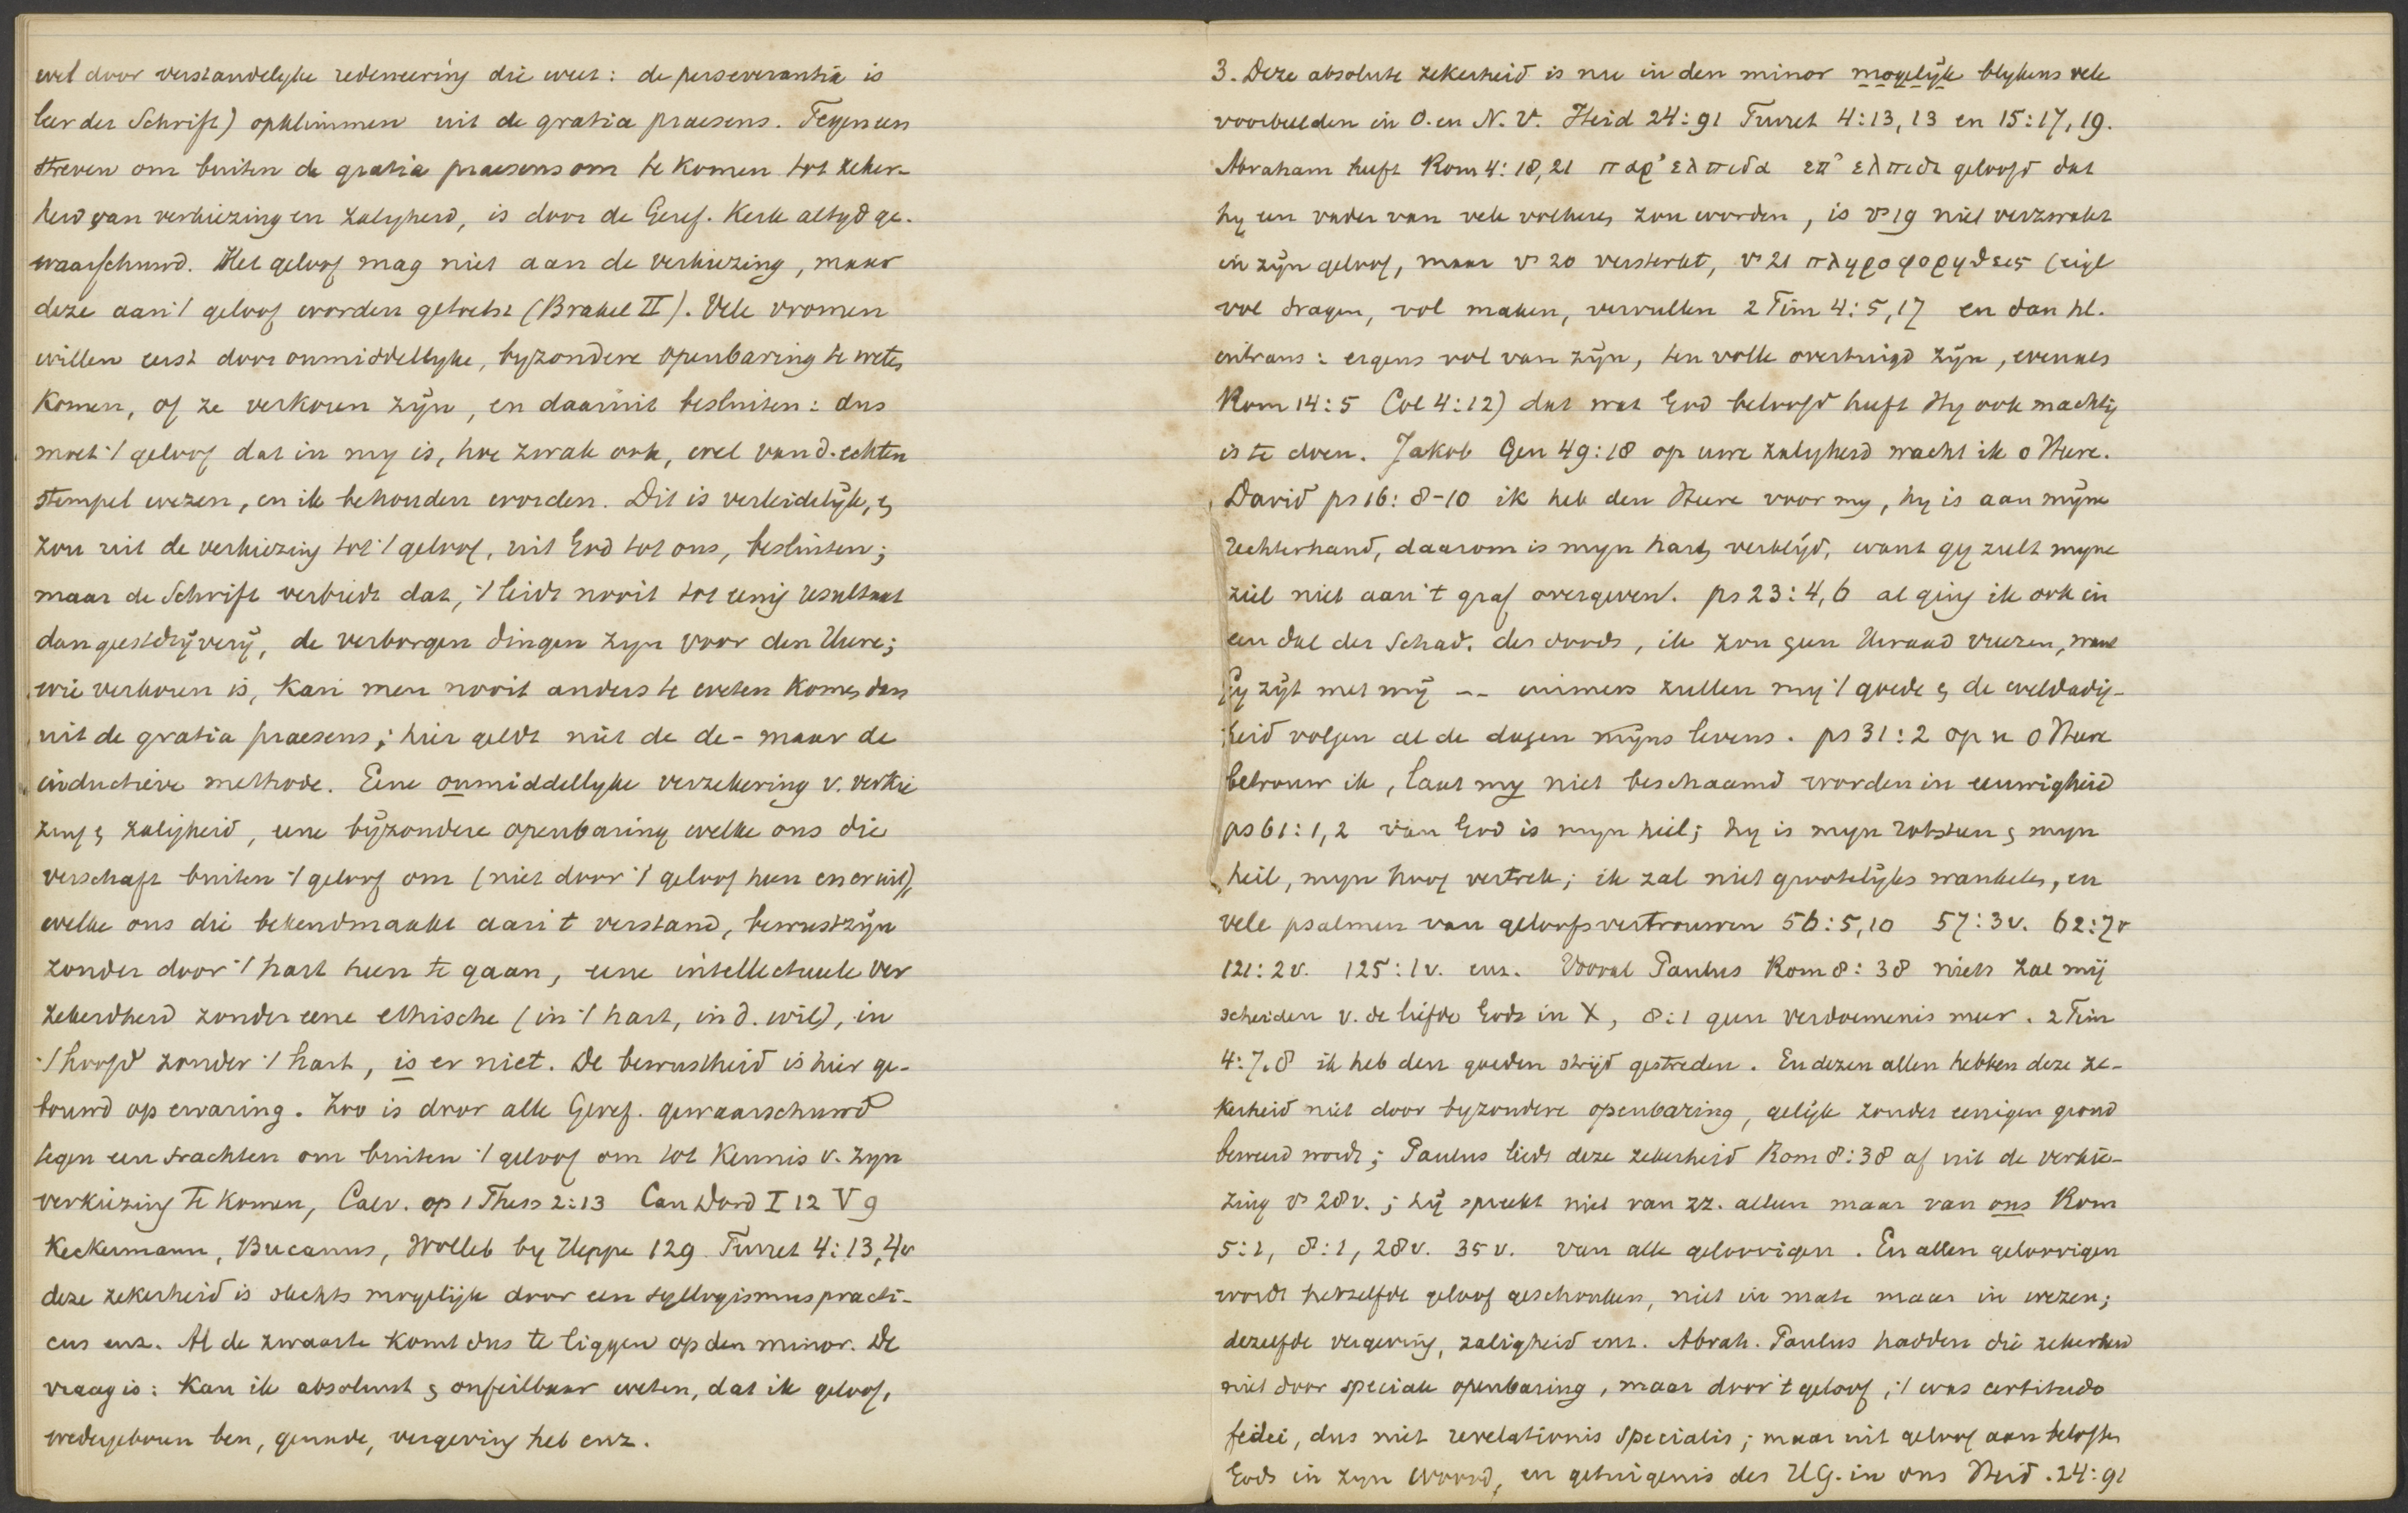 wel door verstandelyke redeneering die weet: de perseverantia is
leer der Schrift) opklimmen uit de gratia praesens. Tegen een
streven om buiten de gratia praesens om te komen tot zeker-
heid van verkiezing en zalygheid, is door de Geref. Kerk altyd ge-
waarschuwd. Het geloof mag niet aan de verkiezing, maar
deze aan 't geloof worden getoetst (Brakel II). Vele vromen
willen eerst door onmiddellyke, byzondere openbaring te weten
komen, of ze verkoren zÿn, en daaruit besluiten: dus
moet 't geloof dat in my is, hoe zwak ook, wel van d. echten
stempel wezen, en ik behouden worden. Dit is verleidelÿk, en
zou uit de verkiezing tot 't geloof, uit God tot ons, besluiten;
maar de Schrift verbiedt dat, 't leidt nooit tot eenig resultaat
dan geestdrÿverÿ, de verborgen dingen zyn voor den Heere;
wie verkoren is, kan men nooit anders te weten komen dan
uit de gratia praesens; hier geldt niet de de- maar de
inductieve methode. Eene onmiddellyke verzekering v. verkie
zing en zaligheid, eene bÿzondere openbaring welke ons die
verschaft buiten 't geloof om (niet door 't geloof heen en er uit),
welke ons die bekendmaakt aan 't verstand, bewustzÿn
zonder door 't hart heen te gaan, eene intellectueele ver
zekerdheid zonder eene ethische (in 't hart, in d. wil), in
't hoofd zonder 't hart, is er niet. De bewustheid is hier ge-
bouwd op ervaring. Zoo is door alle Geref. gewaarschuwd
tegen een trachten om buiten 't geloof om tot kennis v. zyn
verkiezing te komen, Calv. op 1 Thess 2:13 Can Dord I 12 V 9
Keckermann, Bucanus, Wolleb by Heppe 129 Turret 4:13,4v
deze zekerheid is slechts mogelijk door een syllogismus practi-
cus enz. Al de zwaarte komt dus te liggen op den minor. De
vraag is: kan ik absoluut en onfeilbaar weten, dat ik geloof,
wedergeboren ben, genade, vergeving heb enz.
3. Deze absolute zekerheid is nu in den minor mogelÿk blykens vele
voorbeelden in O. en N. V. Heid 24:91 Turret 4:13,13 en 15:17,19.
Abraham heeft Rom 4:18,21 παρ' ελπιδα επ' ελπιδι geloofd dat
hy een vader van vele volkeren zou worden, is vs 19 niet verzwakt
in zÿn geloof, maar vs 20 versterkt, vs 21 πληροφορηθεις (eigl
vol dragen, vol maken, vervullen 2 Tim 4:5,17 en dan hl.
intrans: ergens vol van zÿn, ten volle overtuigd zÿn, evenals
Rom 14:5 Col 4:12) dat wat God beloofd heeft Hy ook machtig
is te doen. Jakob Gen 49:18 op uwe zalyheid wacht ik o Heere.
David ps 16:8-10 ik heb den Heere voor my, hy is aan mÿne
rechterhand, daarom is myn hart verblÿd, want gy zult myne
ziel niet aan 't graf overgeven. ps 23:4,6 al ging ik ook in
een dal der schad. des doods, ik zou geen kwaad vreezen, want
Gy zÿt met mÿ -- immers zullen my 't goede en de weldadig-
heid volgen al de dagen mÿns levens. ps 31:2 op u o Heere
betrouw ik, laat my niet beschaamd worden in eeuwigheid
ps 61:1,2 van God is myn heil; hy is myn rotsteen en myn
heil, myn hoog vertrek; ik zal niet grootelÿks wankelen, en
vele psalmen van geloofsvertrouwen 56:5,10 57:3v. 62:7v
121:2v. 125:1v. enz. Vooral Paulus Rom 8:38 niets zal mÿ
scheiden v. de liefde Gods in X, 8:1 geen verdoemenis meer. 2 Tim
4:7.8 ik heb den goeden strÿd gestreden. En dezen allen hebben deze ze-
kerheid niet door byzondere openbaring, gelÿk zonder eenigen grond
beweerd wordt; Paulus leidt deze zekerheid Rom 8:38 af uit de verkie-
zing vs 28v.; hÿ spreekt niet van zz. alleen maar van ons Rom
5:1, 8:1, 28v. 35v. van alle geloovigen. En allen geloovigen
wordt hetzelfde geloof geschonken, niet in mate maar in wezen;
dezelfde vergeving, zaligheid enz. Abrah. Paulus hadden die zekerheid
niet door speciale openbaring, maar door 't geloof; 't was certitudo
fidei, dus niet revelationis specialis; maar uit geloof aan beloften
Gods in zyn Woord, en getuigenis des HG. in ons Heid. 24:91